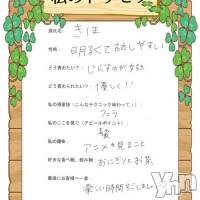 私のトリセツ
源氏名： きほ
性格： 明るくて話しやすい
どう責めたい？： じらすのが好き
どう責められたい？： 優しく!!
私の得意技（こんなテクニック味わって！）： フェラ
私のここを見て（アピールポイント）： 髪
私の趣味： アニメを見ること
好きな食べ物、飲み物： おにぎりとお茶
最後にお客様へ一言：
楽しい時間すごしましょう